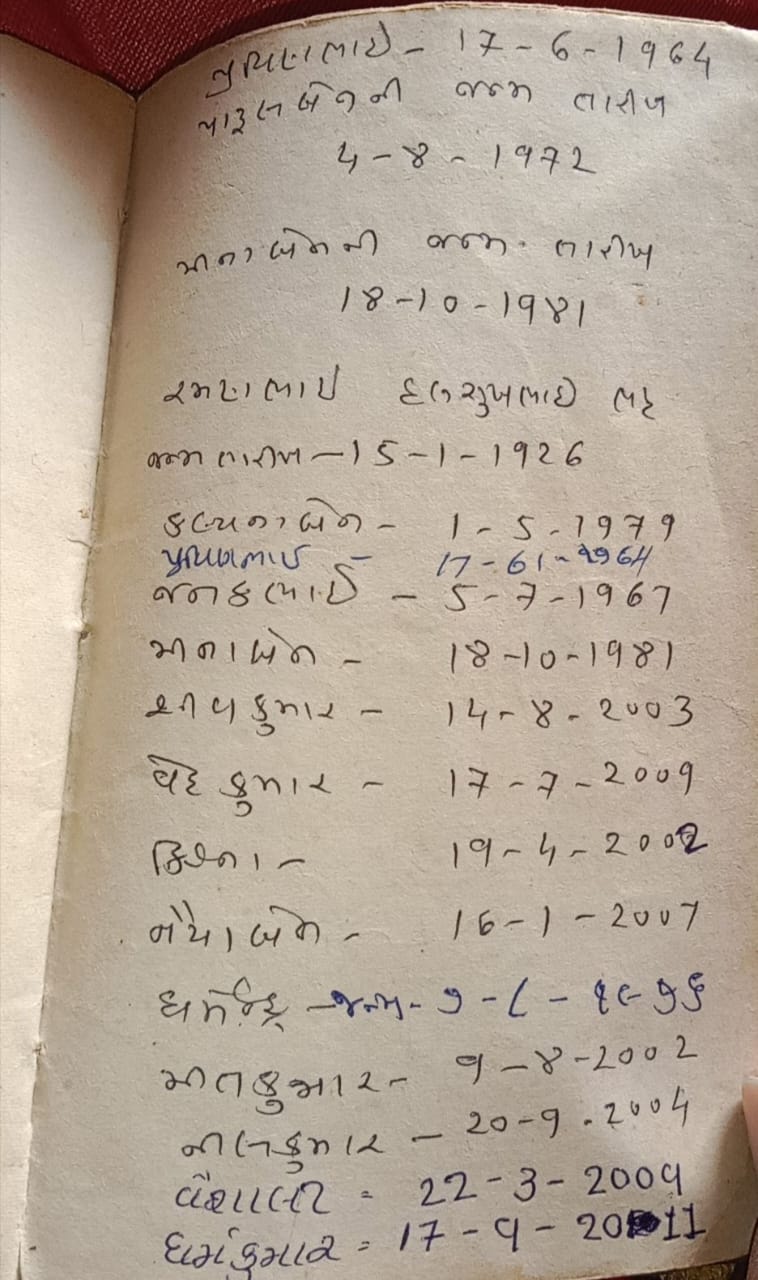 પ્રવિણભાઈ - 17-6-1964
પારૂલબેનની જન્મ તારીખ
4-8-1972
મીનાબેનની જન્મ તારીખ
18-10-1981
રમણભાઈ દલસુખભાઈ ભટ્ટ
જન્મ તારીખ - 15-1-1926
કલ્પનાબેન - 1-5-1979
પ્રવિણભાઈ - 17-6
જનકભાઈ - 5-7-1967
મીનાબેન - 18-10-1981
શીવકુમાર - 14-8-2003
વેદકુમાર - 17-7-2009
ક્રિશ્ના - 19-4-2002
નૈયાબેન - 16-1-2007
ધર્મેન્દ્ર - જન્મ - ૭-૮-
મીતકુમાર - 9-8-2002
નીલકુમાર - 20-9-2004
વૈશાલી = 22-3-2009
ધર્મકુમાર = 17-9-2011